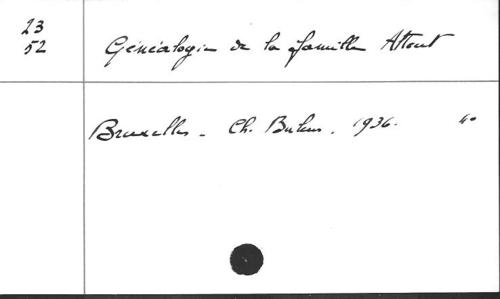 23
52
Généalogie de la famille Attout
Bruxelles - Ch. Bulens. 1936. 4°